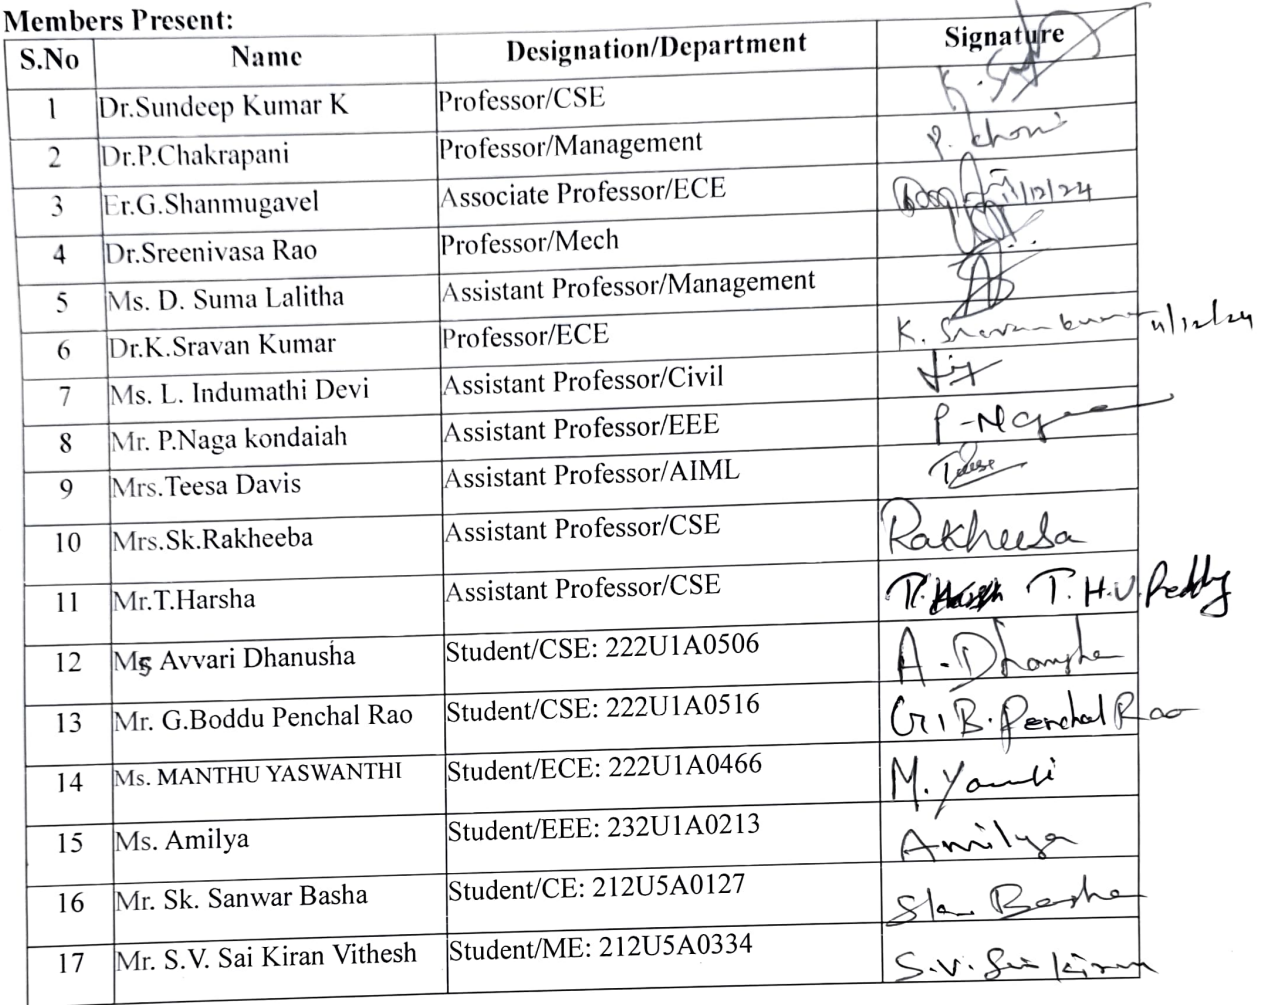 Members Present:
S.No Name Designation/Department Signature
1 Dr.Sundeep Kumar K Professor/CSE
2 Dr.P.Chakrapani Professor/Management
3 Er.G.Shanmugavel Associate Professor/ECE 11/12/24
4 Dr.Sreenivasa Rao Professor/Mech
5 Ms. D. Suma Lalitha Assistant Professor/Management
6 Dr.K.Sravan Kumar Professor/ECE K. Sravan kumar 11/12/24
7 Ms. L. Indumathi Devi Assistant Professor/Civil
8 Mr. P.Naga kondaiah Assistant Professor/EEE
9 Mrs.Teesa Davis Assistant Professor/AIML
10 Mrs.Sk.Rakheeba Assistant Professor/CSE Rakheeba
11 Mr.T.Harsha Assistant Professor/CSE T. H.V. Reddy
12 Ms Avvari Dhanusha Student/CSE: 222U1A0506 A. Dhanusha
13 Mr. G.Boddu Penchal Rao Student/CSE: 222U1A0516 G. B. Penchal Rao
14 Ms. MANTHU YASWANTHI Student/ECE: 222U1A0466
15 Ms. Amilya Student/EEE: 232U1A0213 Amilya
16 Mr. Sk. Sanwar Basha Student/CE: 212U5A0127 Sk. Basha
17 Mr. S.V. Sai Kiran Vithesh Student/ME: 212U5A0334 S.V. Sai kiran